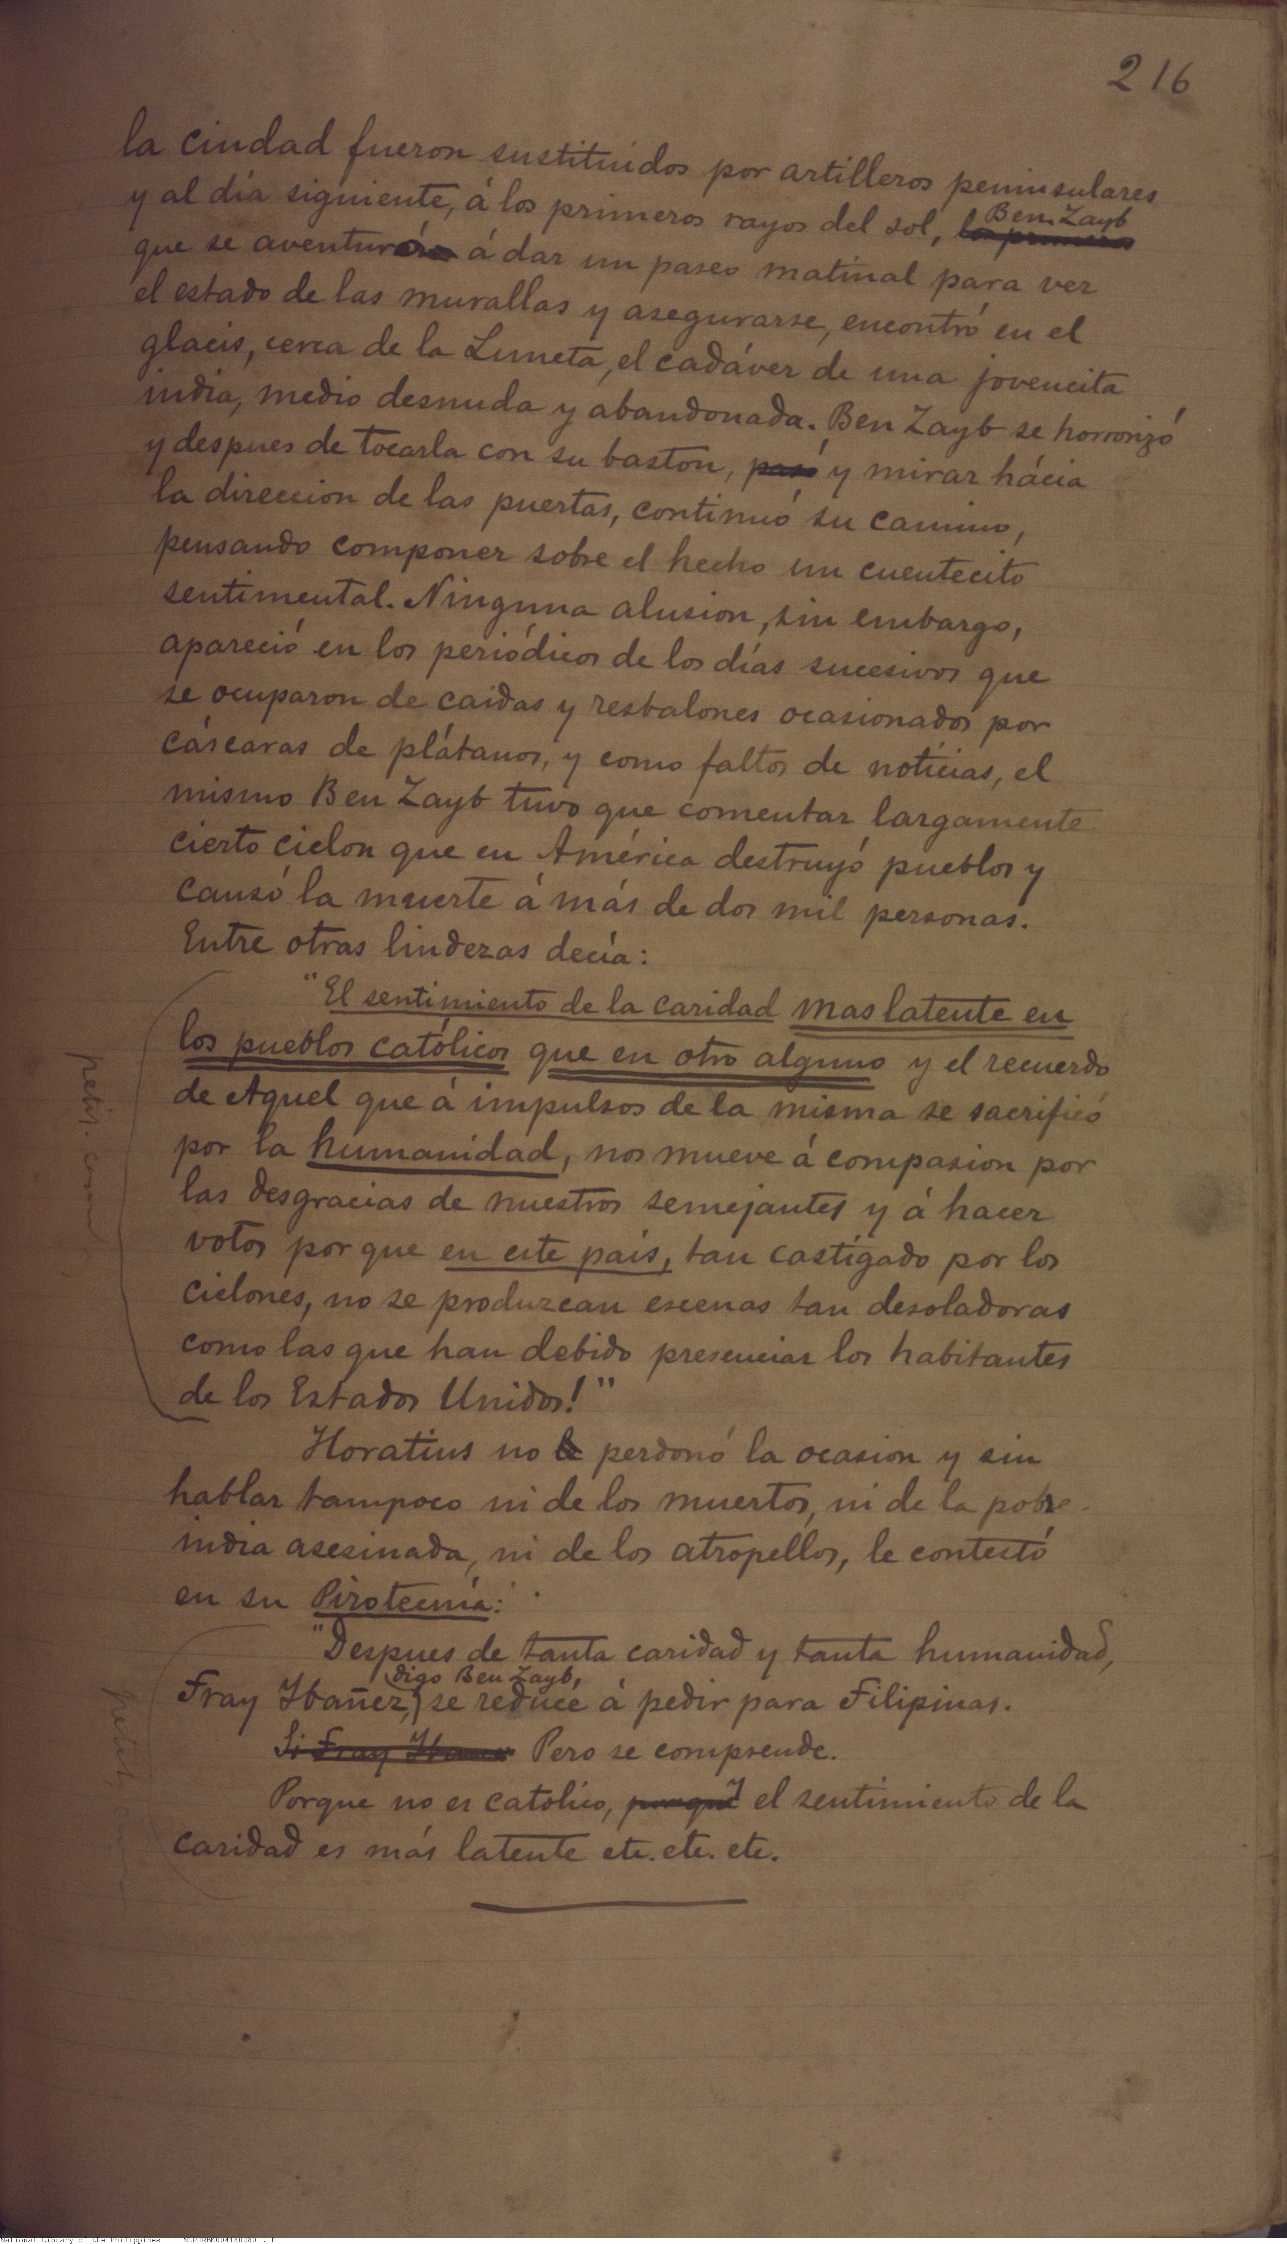 216
la ciudad fueron sustituidos por artilleros peninsulares
y al día siguiente, á los primeros rayos del sol, los primeros Ben Zayb
que se aventuró á dar un paseo matinal para ver
el estado de las murallas y asegurarse, encontró en el
glacis, cerca de la Luneta, el cadáver de una jovencita
india, medio desnuda y abandonada. Ben Zayb se horrorizó
y despues de tocarla con su baston, pasó y mirar hácia
la direccion de las puertas, continuó su camino,
pensando componer sobre el hecho un cuentecito
sentimental. Ninguna alusion, sin embargo,
apareció en los periódicos de los días sucesivos que
se ocuparon de caidas y resbalones ocasionados por
cáscaras de plátanos, y como faltos de noticias, el
mismo Ben Zayb tuvo que comentar largamente
cierto ciclon que en América destruyó pueblos y
causó la muerte á más de dos mil personas.
Entre otras lindezas decía:
"El sentimiento de la caridad mas latente en
los pueblos católicos que en otro alguno y el recuerdo
de Aquel que á impulsos de la misma se sacrificó
por la humanidad, nos mueve á compasion por
las desgracias de nuestros semejantes y á hacer
votos por que en este país, tan castigado por los
ciclones, no se produzcan escenas tan desoladoras
como las que han debido presenciar los habitantes
de los Estados Unidos!"
Horatius no le perdonó la ocasion y sin
hablar tampoco ni de los muertos, ni de la pobre
india asesinada, ni de los atropellos, le contestó
en su Pirotecnía:
"Despues de tanta caridad y tanta humanidad,
(digo Ben Zayb,
Fray Ibañez,) se reduce á pedir para Filipinas.
Si Fray Ibañez Pero se comprende.
Porque no es católico, porque y el sentimiento de la
caridad es más latente etc. etc. etc.
National Library of the Philippines